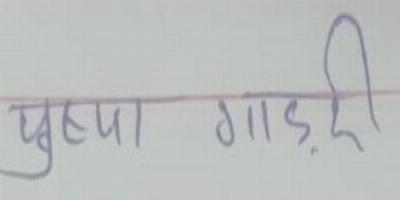 पुष्पा गाड़री